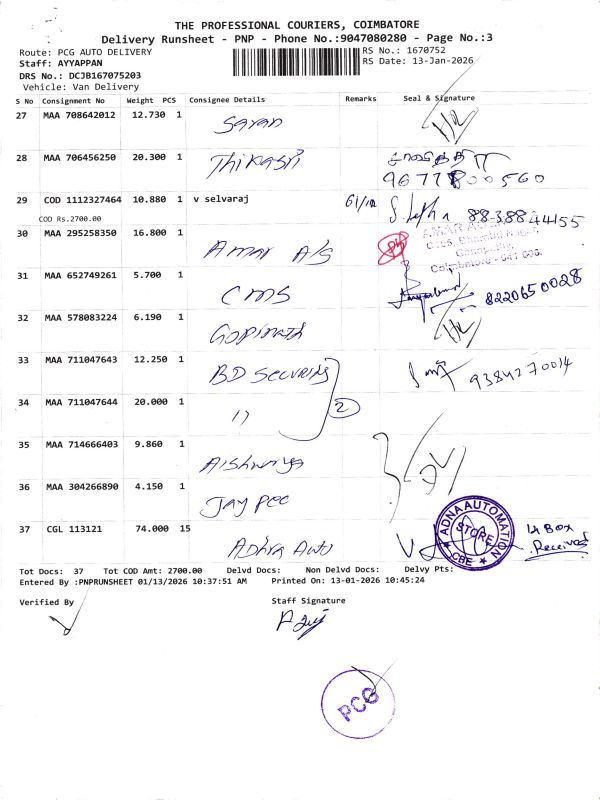 THE PROFESSIONAL COURIERS, COIMBATORE
Delivery Runsheet - PNP - Phone No.:9047080280 - Page No.:3
Route: PCG AUTO DELIVERY
RS No.: 1670752
Staff: AYYAPPAN
RS Date: 13-Jan-2026
DRS No.: DCJB167075203
Vehicle: Van Delivery
S No Consignment No Weight PCS Consignee Details Remarks Seal & Signature
27 MAA 708642012 12.730 1 Saran
28 MAA 706456250 20.300 1
96777800560
29 COD 1112327464 10.880 1 v selvaraj 88388 44155
COD Rs.2700.00
30 MAA 295258350 16.800 1 Amar A/S
Coimbatore - 641 006.
31 MAA 652749261 5.700 1 CMS 8220650028
32 MAA 578083224 6.190 1 Gopinath
33 MAA 711047643 12.250 1 BD Securities 9384270014
34 MAA 711047644 20.000 1 11 2
35 MAA 714666403 9.860 1 Aishwarya
36 MAA 304266890 4.150 1 Jay pee
37 CGL 113121 74.000 15 Adhra Auto ADNA AUTOMATION STORE CBE 14 Box
Received
Tot Docs: 37 Tot COD Amt: 2700.00 Delvd Docs: Non Delvd Docs: Delvy Pts:
Entered By :PNPRUNSHEET 01/13/2026 10:37:51 AM Printed On: 13-01-2026 10:45:24
Verified By Staff Signature
PCG